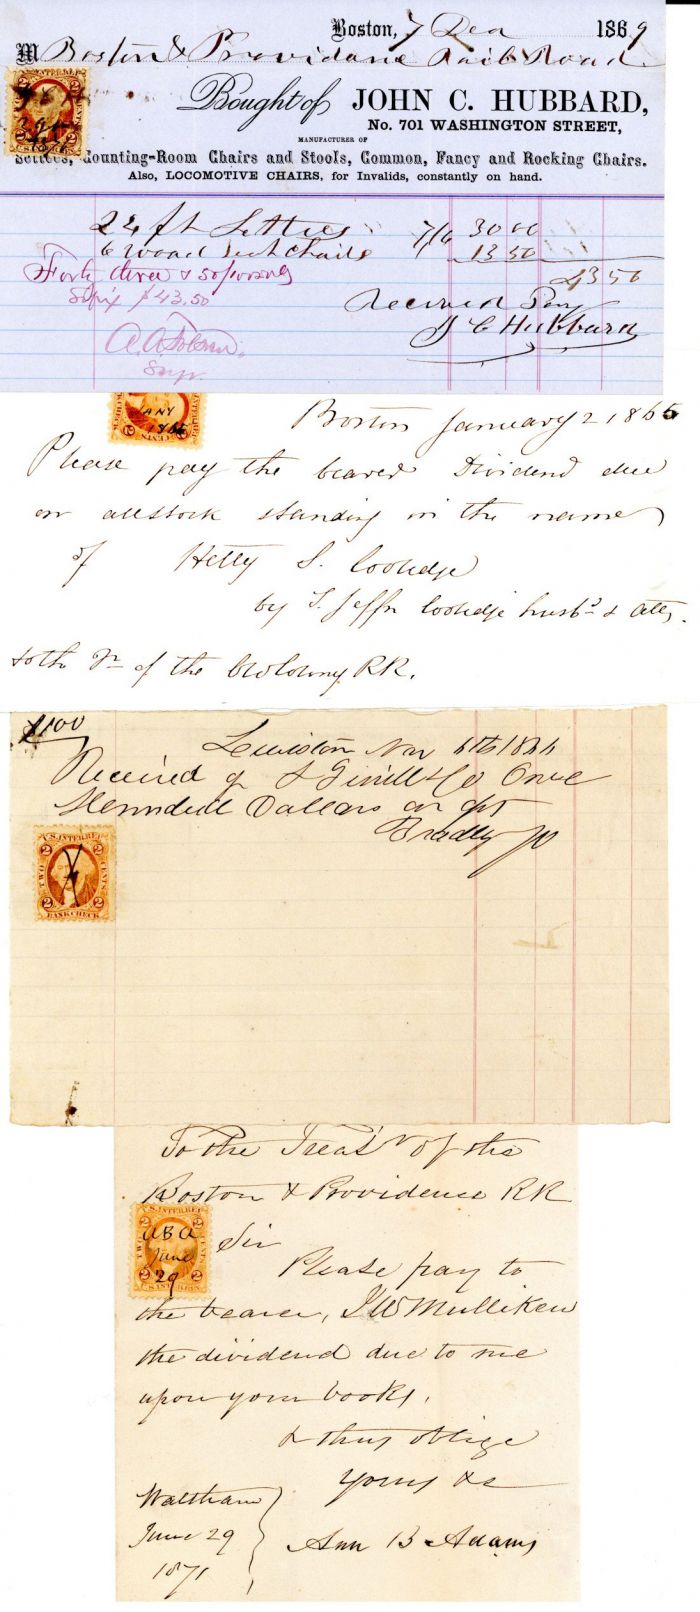 Boston, 7 Dec 1869
M Boston & Providence Rail Road
Bought of JOHN C. HUBBARD,
No. 701 WASHINGTON STREET,
MANUFACTURER OF
Settees, Counting-Room Chairs and Stools, Common, Fancy and Rocking Chairs.
Also, LOCOMOTIVE CHAIRS, for Invalids, constantly on hand.
24 ft Settees 30 00
6 wood seat chairs 13 50
43 50
Forty three & 50/
$43.50
Received Pay
J C Hubbard
Supr
JANY
1865
Boston January 2 1865
Please pay the bearer Dividend due
on all stock standing in the name
of Hetty S. Coolidge
by T. Jeffn Coolidge husbd & Atty.
to the Tr of the Old Colony RR.
$100
Lewiston Nov 1864
Received of & Co One
Hundred Dollars on
Bradley
U.S. INTER. REV.
2 2
TWO CENTS
2 2
BANK CHECK
To the Treasr of the
Boston & Providence RR
U.S. INTER. REV.
2 2
TWO CENTS
ABA
June
29
2 2
Sir
Please pay to
the bearer, J W Mulliken
the dividend due to me
upon your books,
& thus oblige
Yours &c
Waltham
June 29
1871
Ann B Adams